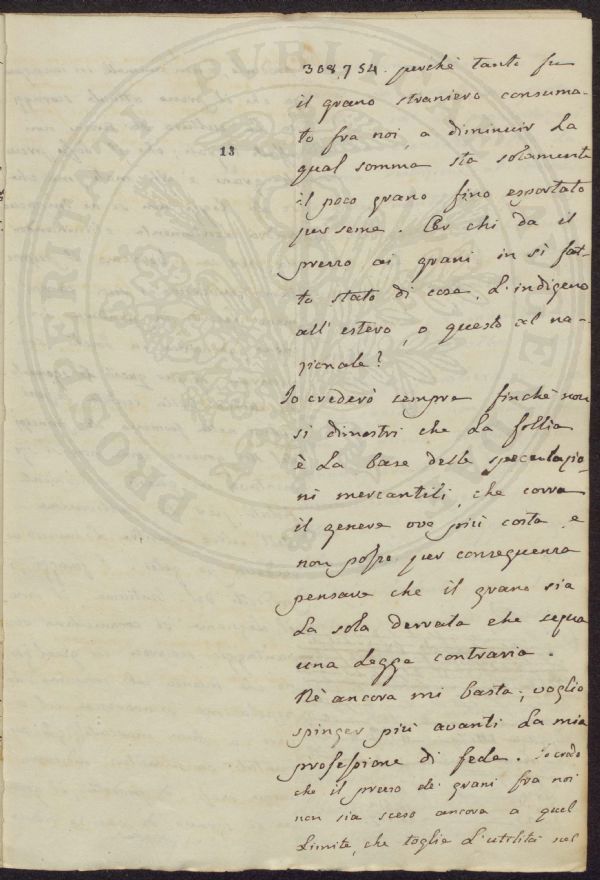 13
308,754. perchè tanto fu
il grano straniero consuma-
to fra noi, a diminuir la
qual somma sta solamente
il poco grano fino esportato
per seme. Or chi da il
prezzo ai grani in sì fat-
to stato di cose, l'indigeno
all'estero, o questo al na-
zionale?
Io crederò sempre finchè non
si dimostri che la follia
è la base delle speculazio-
ni mercantili, che corra
il genere ove più costa, e
non posso per conseguenza
pensare che il grano sia
la sola derrata che segua
una legge contraria.
Nè ancora mi basta; voglio
spinger più avanti la mia
professione di fede. Io credo
che il prezzo de' grani fra noi
non sia sceso ancora a quel
limite, che toglie l'utilità nel
PROSPERITATI PUBLICAE